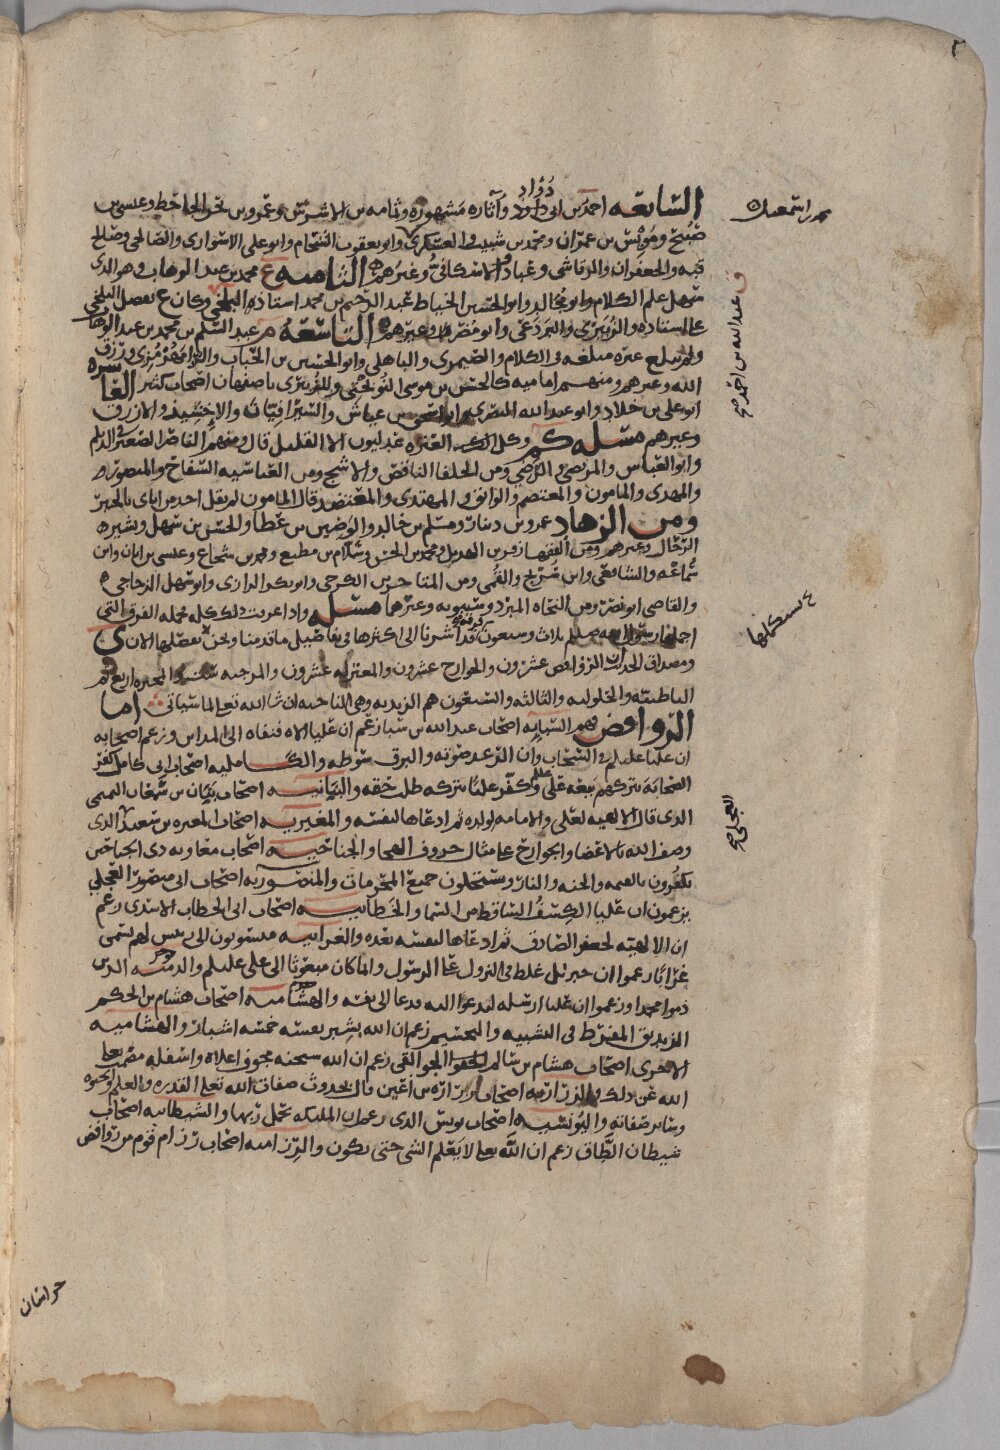 السابعه احمد بن ابي دؤاد وآثاره مشهوره وثمامه بن الاشرس وعمرو بن بحر الجاحظ وعيسى بن
صبيح ومويس بن عمران ومحمد بن شبيب العسكري وابو يعقوب الشحام وابو علي الاسواري والصالحي وصالح
قبه والجعفران والرقاشي وعباد والاسكافي وغيرهم الثامنه ع محمد بن عبد الوهاب وهو الذي
سهل علم الكلام وابو مجالد وابو الحسين الخياط عبد الرحيم بن محمد استاذ البلخي وكان ع يفضل البلخي
على استاذه والزبيري والبردعي وابو مضر وغيرهم التاسعه م عبد السلم بن محمد بن عبد الوهاب
ولم يبلغ غيره مبلغه في الكلام والصيمري والباهلي وابو الحسن بن الخباب والرامهرمزي ورزق
الله وغيرهم ومنهم اماميه كالحسن بن موسى النوبختي وللزبيري باصفهان اصحاب كثير العاشره
ابو علي بن خلاد وابو عبد الله البصري وابو اسحق بن عياش والسيرافيان والاخشيذ والازرق
وغيرهم مسله كم وكل العتره عدليون الا القليل قال ومنهم الناصر الصغير في الديلم
وابو العباس والمرتضى والرضي ومن الخلفا الناقص والاشج ومن العباسيه السفاح والمنصور
والمهدى والمامون والمعتصم والواثق والمهتدى والمعتضد قال المامون لم يقل احد من اباى بالجبر
ومن الزهاد عمرو بن دينار ومسلم بن خالد والوضين بن عطا والحسن بن سهل وبشير
الرحال وغيرهم ومن الفقها زفر بن الهذيل ومحمد بن الحسن وسلام بن مطيع ومحمد بن شجاع وعيسى بن ابان وابن
سماعه والشافعي وابن سريج والقمي ومن المتاخرين الكرخي وابو بكر الرازى وابو سهل الزجاجي
والقاضي ابو نصر ومن النحاه المبرد وسيبويه وغيرها مسله واذا عرفت ذلك كله فجمله الفرق التي
اجملها رسول الله صلى الله عليه وسلم ثلاث وسبعون فرقه قد اشرنا الى اكثرها في تفاضيل ما قدمنا ونحن نفصلها الان
ومصداق الحديث الروافض عشرون والخوارج عشرون والمعتزله عشرون والمرجيه ست والمجبره اربع ثم
الباطنيه والحلوليه والثالثه والسبعون هم الزيديه وهي الناجيه ان شا الله تعالى لما سياتي اما
الروافض فهم السبائيه اصحاب عبد الله بن سبا زعم ان عليا الاه فنفاه الى المداين وزعم اصحابه
ان عليا عليلم في السحاب وان الرعد صوته والبرق سوطه والكامليه اصحاب ابي كامل كفر
الصحابة بتركهم بيعه علي علم وكفر عليا بتركه طلب حقه والبيانيه اصحاب بيان بن سمعان التميمي
الذى قال الالهيه لعلي والامامه لولده ثم ادعاها لنفسه والمغيريه اصحاب المغيره بن سعيد الذى
وصف الله بالاعضا والجوارح على مثال حروف الهجا والجناحيه اصحاب معاويه ذى الجناحين
يكفرون بالقيمه والجنه والنار ويستحلون جميع المحرمات والمنصوريه اصحاب ابي منصور العجلي
يزعمون ان عليا الكسف الساقط من السما والخطابيه اصحاب ابي الخطاب الاسدى زعم
ان الالهيه لجعفر الصادق ثم ادعاها لنفسه بعده والغرابيه منسوبون الى ريس لهم يسمى
غرابا زعموا ان جبريل غلط في النزول على الرسول وانما كان مبعوثا الى علي عليلم والذميه الذين
ذموا محمدا وزعموا ان عليا ارسله ليدعوا اليه فدعا الى نفسه والهشاميه اصحاب هشام بن الحكم
الزنديق المفرط في التشبيه والتجسيم زعم ان الله بشبر نفسه خمسه اشبار والهشاميه
الاخرى اصحاب هشام بن سالم الجواليقي زعم ان الله سبحنه مجوف اعلاه واسفله مصمت تعالى
الله عن ذلك والزراريه اصحاب زراره بن اعين قال بحدوث صفات الله تعالى القدره والعلم والحيوه
وساير صفاته واليونسيه اصحاب يونس الذى زعم ان المليكه تحمل ربها والشيطانيه اصحاب
شيطان الطاق زعم ان الله تعالى لا يعلم الشي حتى يكون والرزاميه اصحاب رزام قوم من روافض
خراسان
عبد الله بن احمد صح
العجلي صح